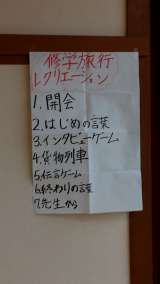 修学旅行
レクリエーション
1.開会
2.はじめの言葉
3.インタビューゲーム
4.貨物列車
5.伝言ゲーム
6.終わりの言葉
7.先生から